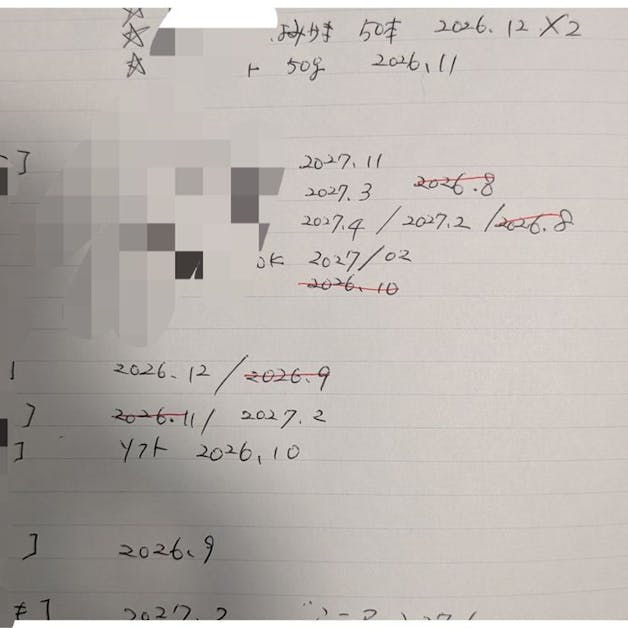 ☆ 50本 2026.12 ×2
☆ ト 50g 2026.11
] 2027.11
2027.3 2026.8
2027.4 / 2027.2 / 2026.8
OK 2027/02
2026.10
] 2026.12 / 2026.9
] 2026.11 / 2027.2
] ソフト 2026.10
] 2026.9
] 2027.2